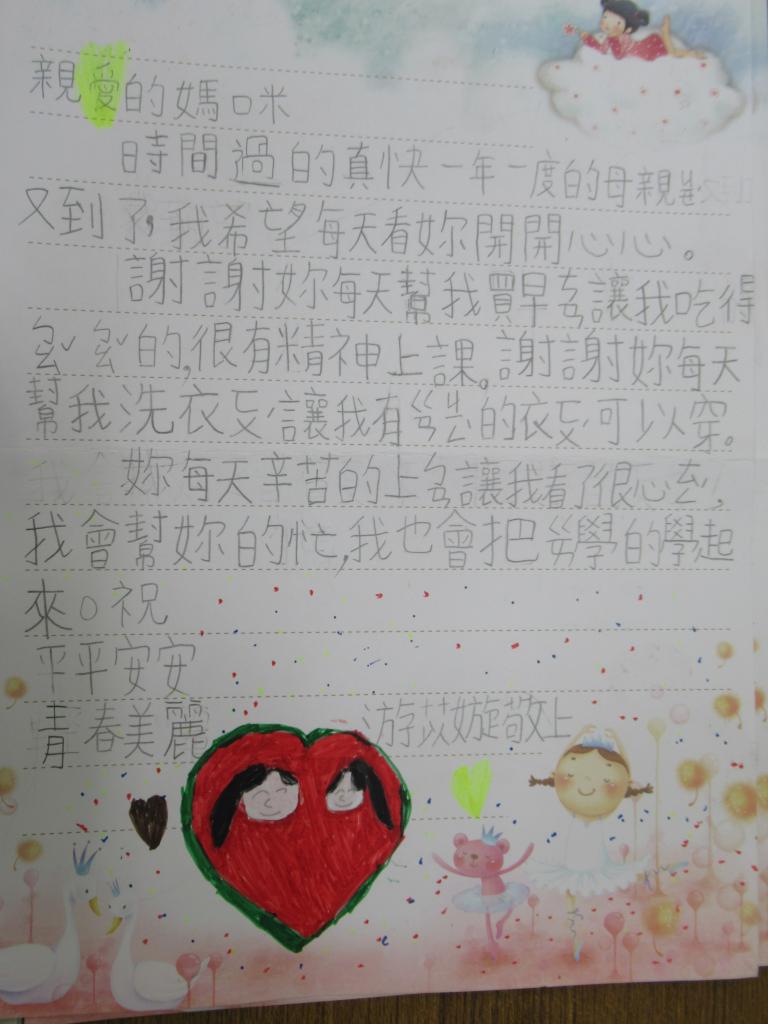 親愛的媽咪
時間過的真快一年一度的母親
又到了,我希望每天看妳開開心心。
謝謝妳每天幫我買早ㄘㄢ讓我吃得
ㄅㄠˇㄅㄠˇ的,很有精神上課。謝謝妳每天
幫我洗衣ㄈㄨˊ讓我有ㄍㄢ的衣ㄈㄨˊ可以穿。
妳每天辛苦的上ㄅㄢ讓我看了很心ㄊㄥˊ,
我會幫妳的忙,我也會把ㄍㄞ學的學起
來。祝
平平安安
青春美麗 游苡嫙敬上